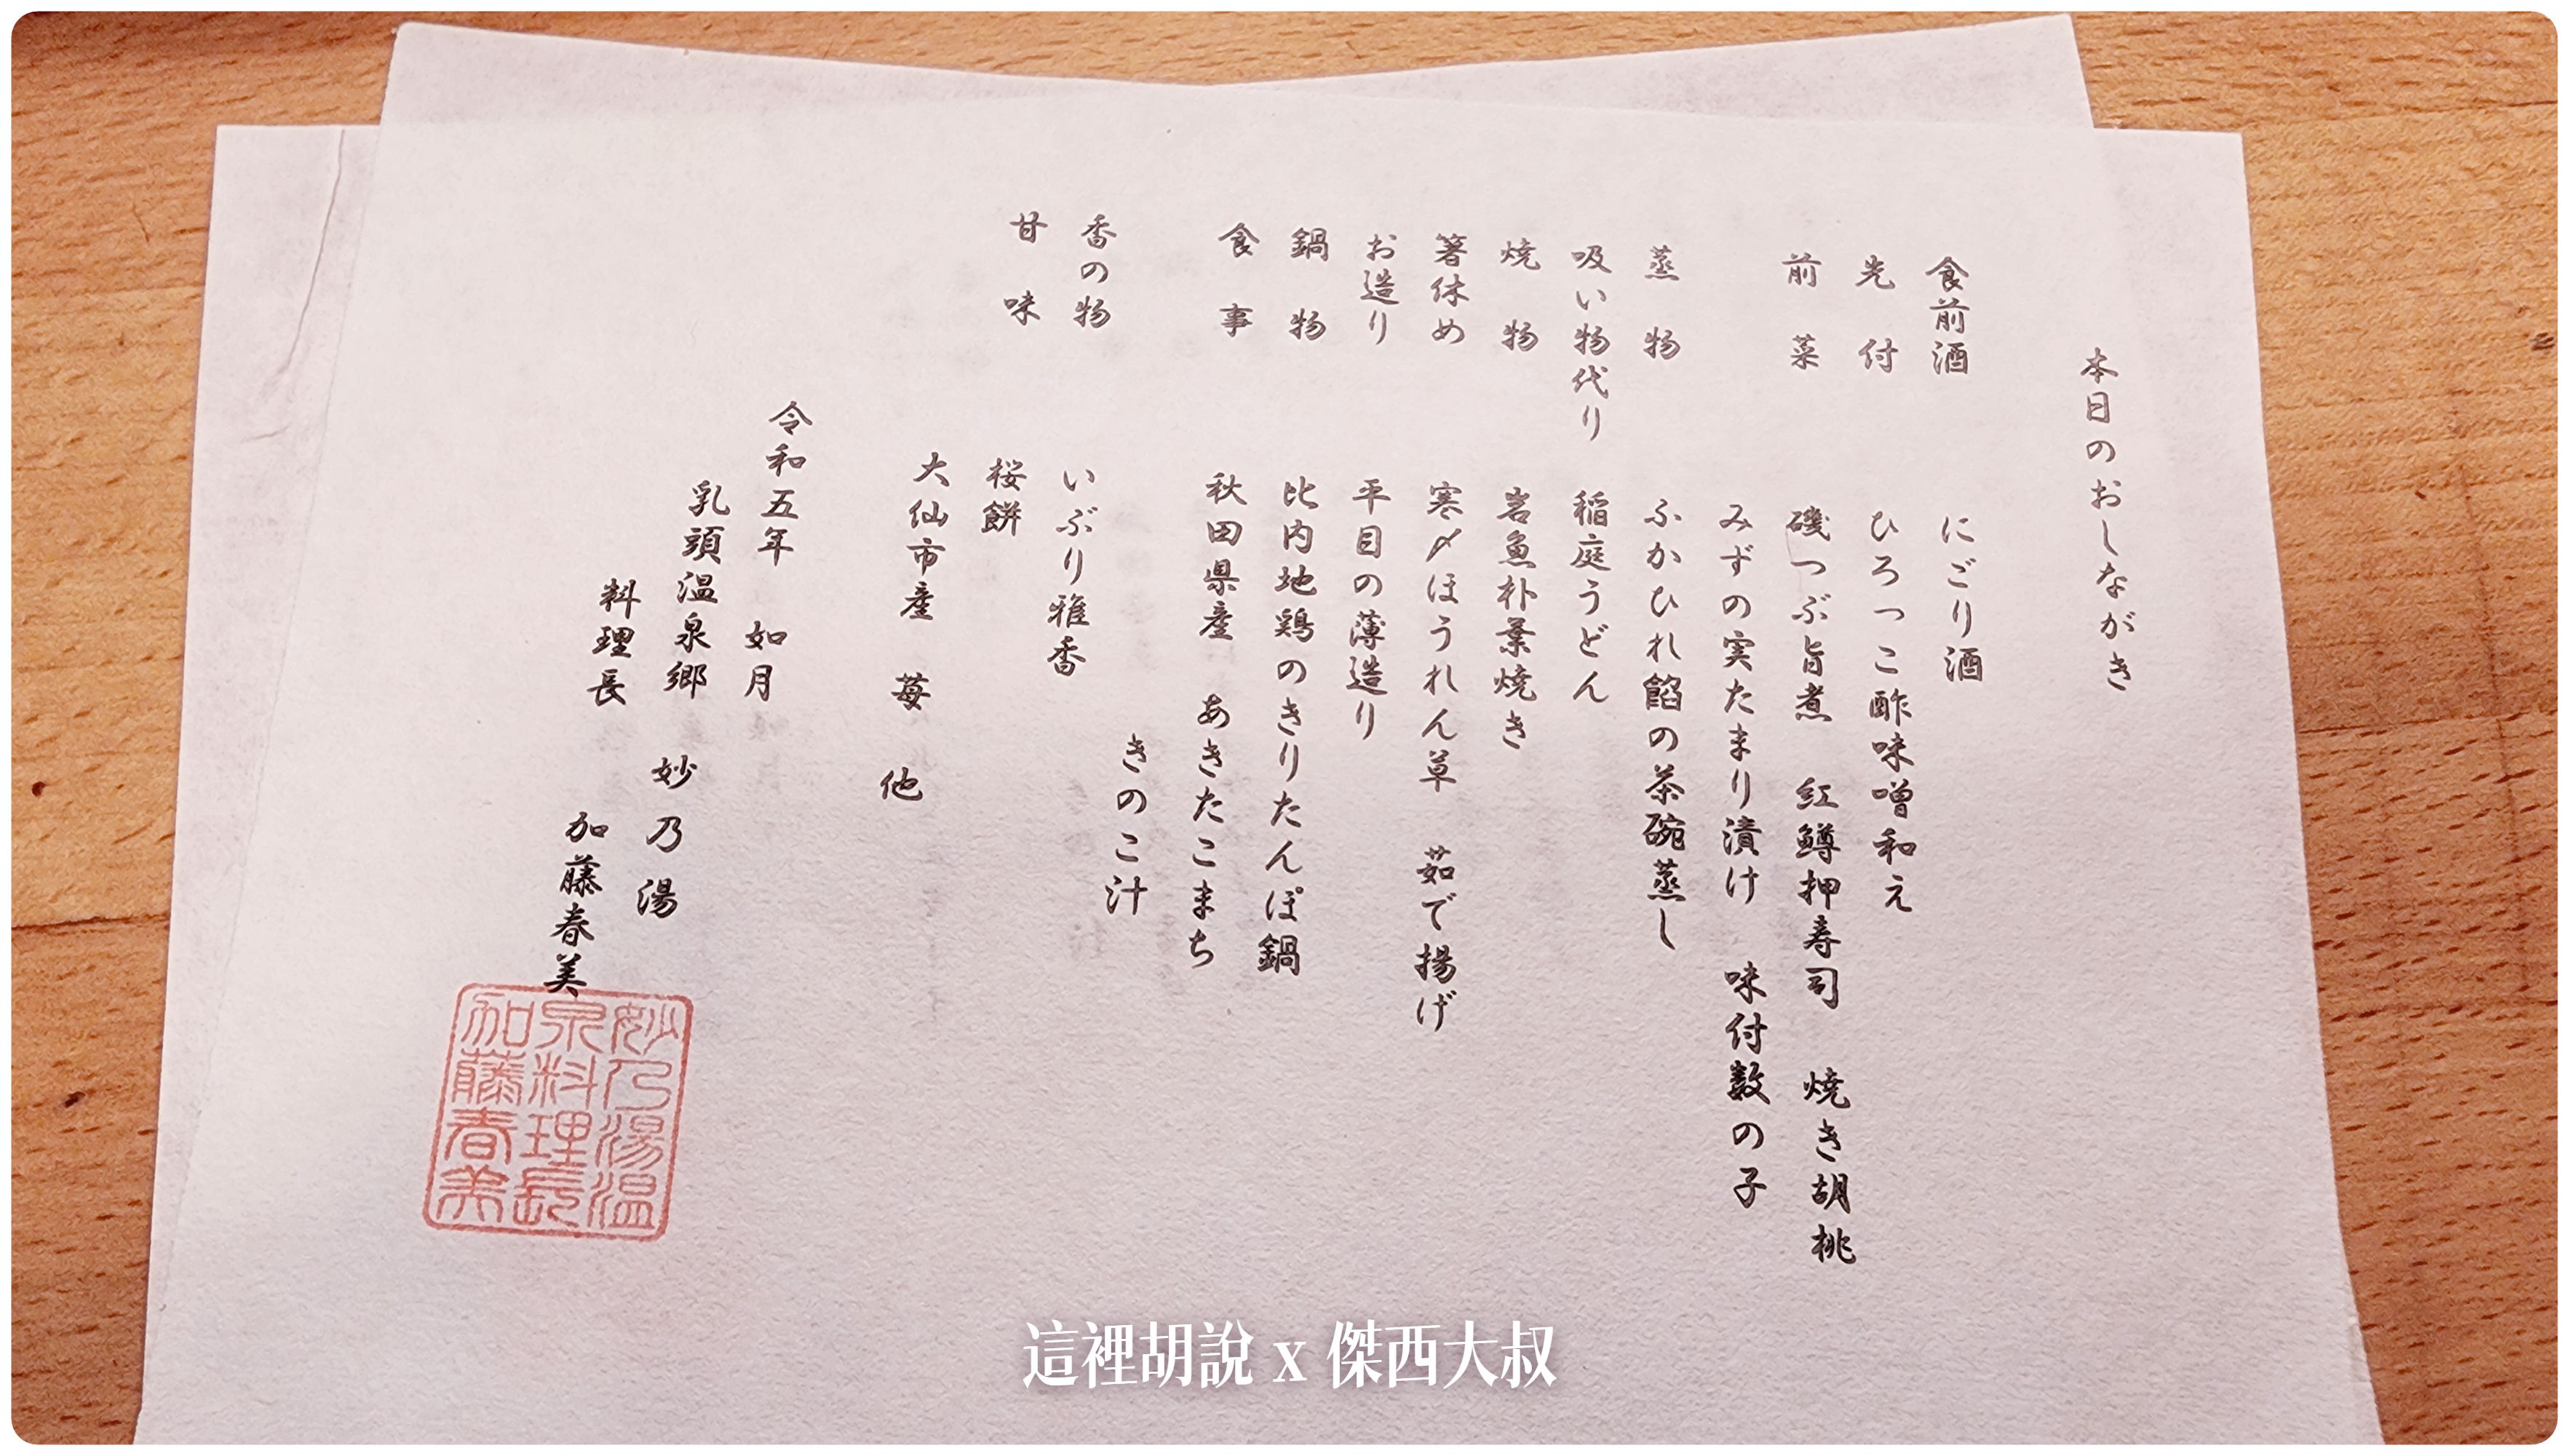 本日のおしながき
食前酒 にごり酒
先付 ひろっこ酢味噌和え
前菜 磯つぶ旨煮 紅鱒押寿司 焼き胡桃
みずの実たまり漬け 味付数の子
蒸物 ふかひれ餡の茶碗蒸し
吸い物代り 稲庭うどん
焼物 岩魚朴葉焼き
箸休め 寒〆ほうれん草 茹で揚げ
お造り 平目の薄造り
鍋物 比内地鶏のきりたんぽ鍋
食事 秋田県産 あきたこまち
きのこ汁
香の物 いぶり雅香
甘味 桜餅
大仙市産 苺 他
令和五年 如月
乳頭温泉郷 妙乃湯
料理長 加藤春美
妙乃湯温
泉料理長
加藤春美
這裡胡說 x 傑西大叔